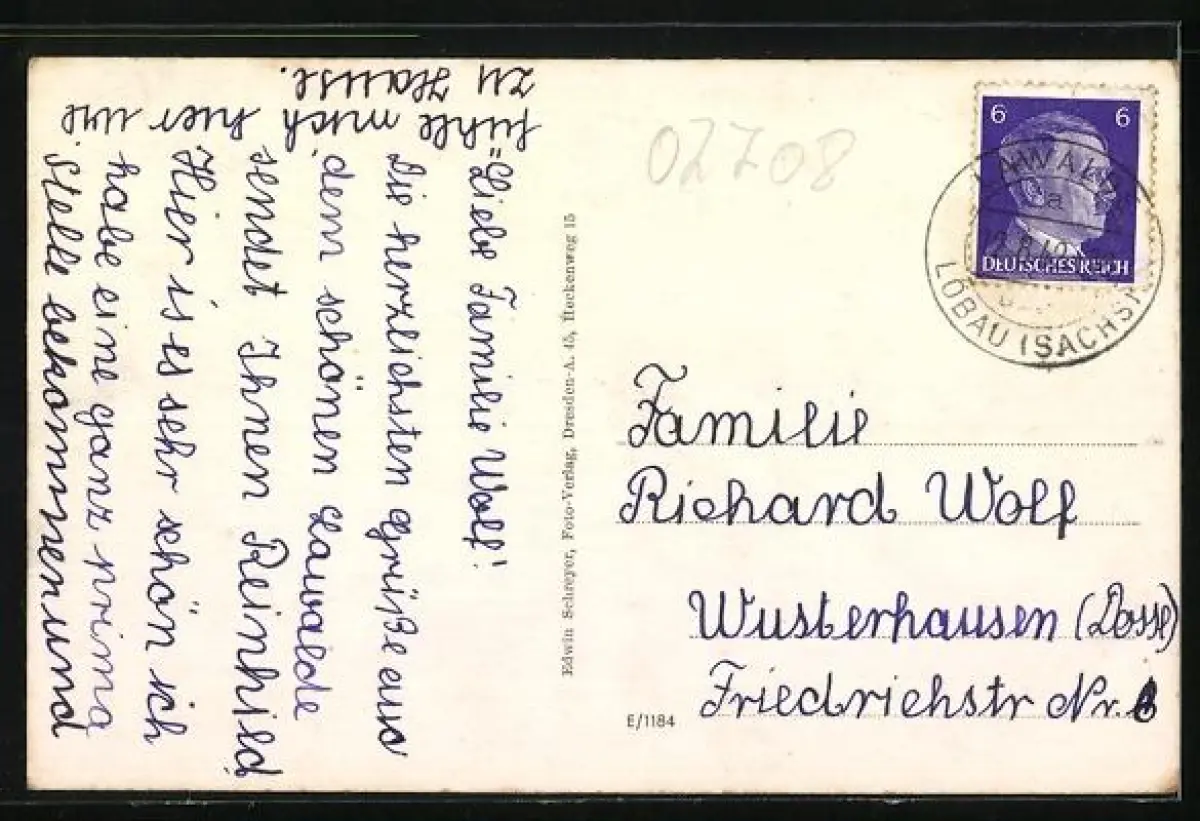 "Liebe Familie Wolf!
Die herzlichsten Grüße aus
dem schönen Lawalde
sendet Ihnen Reinhild
Hier ist es sehr schön ich
habe eine ganz prima
Stelle bekommen und
fühle mich hier wie
zu Hause.
Edwin Schreyer, Foto-Verlag, Dresden-A. 45, Heckenweg 15
02708
6 6
DEUTSCHES REICH
LAWALDE
a
LÖBAU (SACHS)
Familie
Richard Wolf
Wusterhausen (Dosse)
Friedrichstr Nr.
E/1184